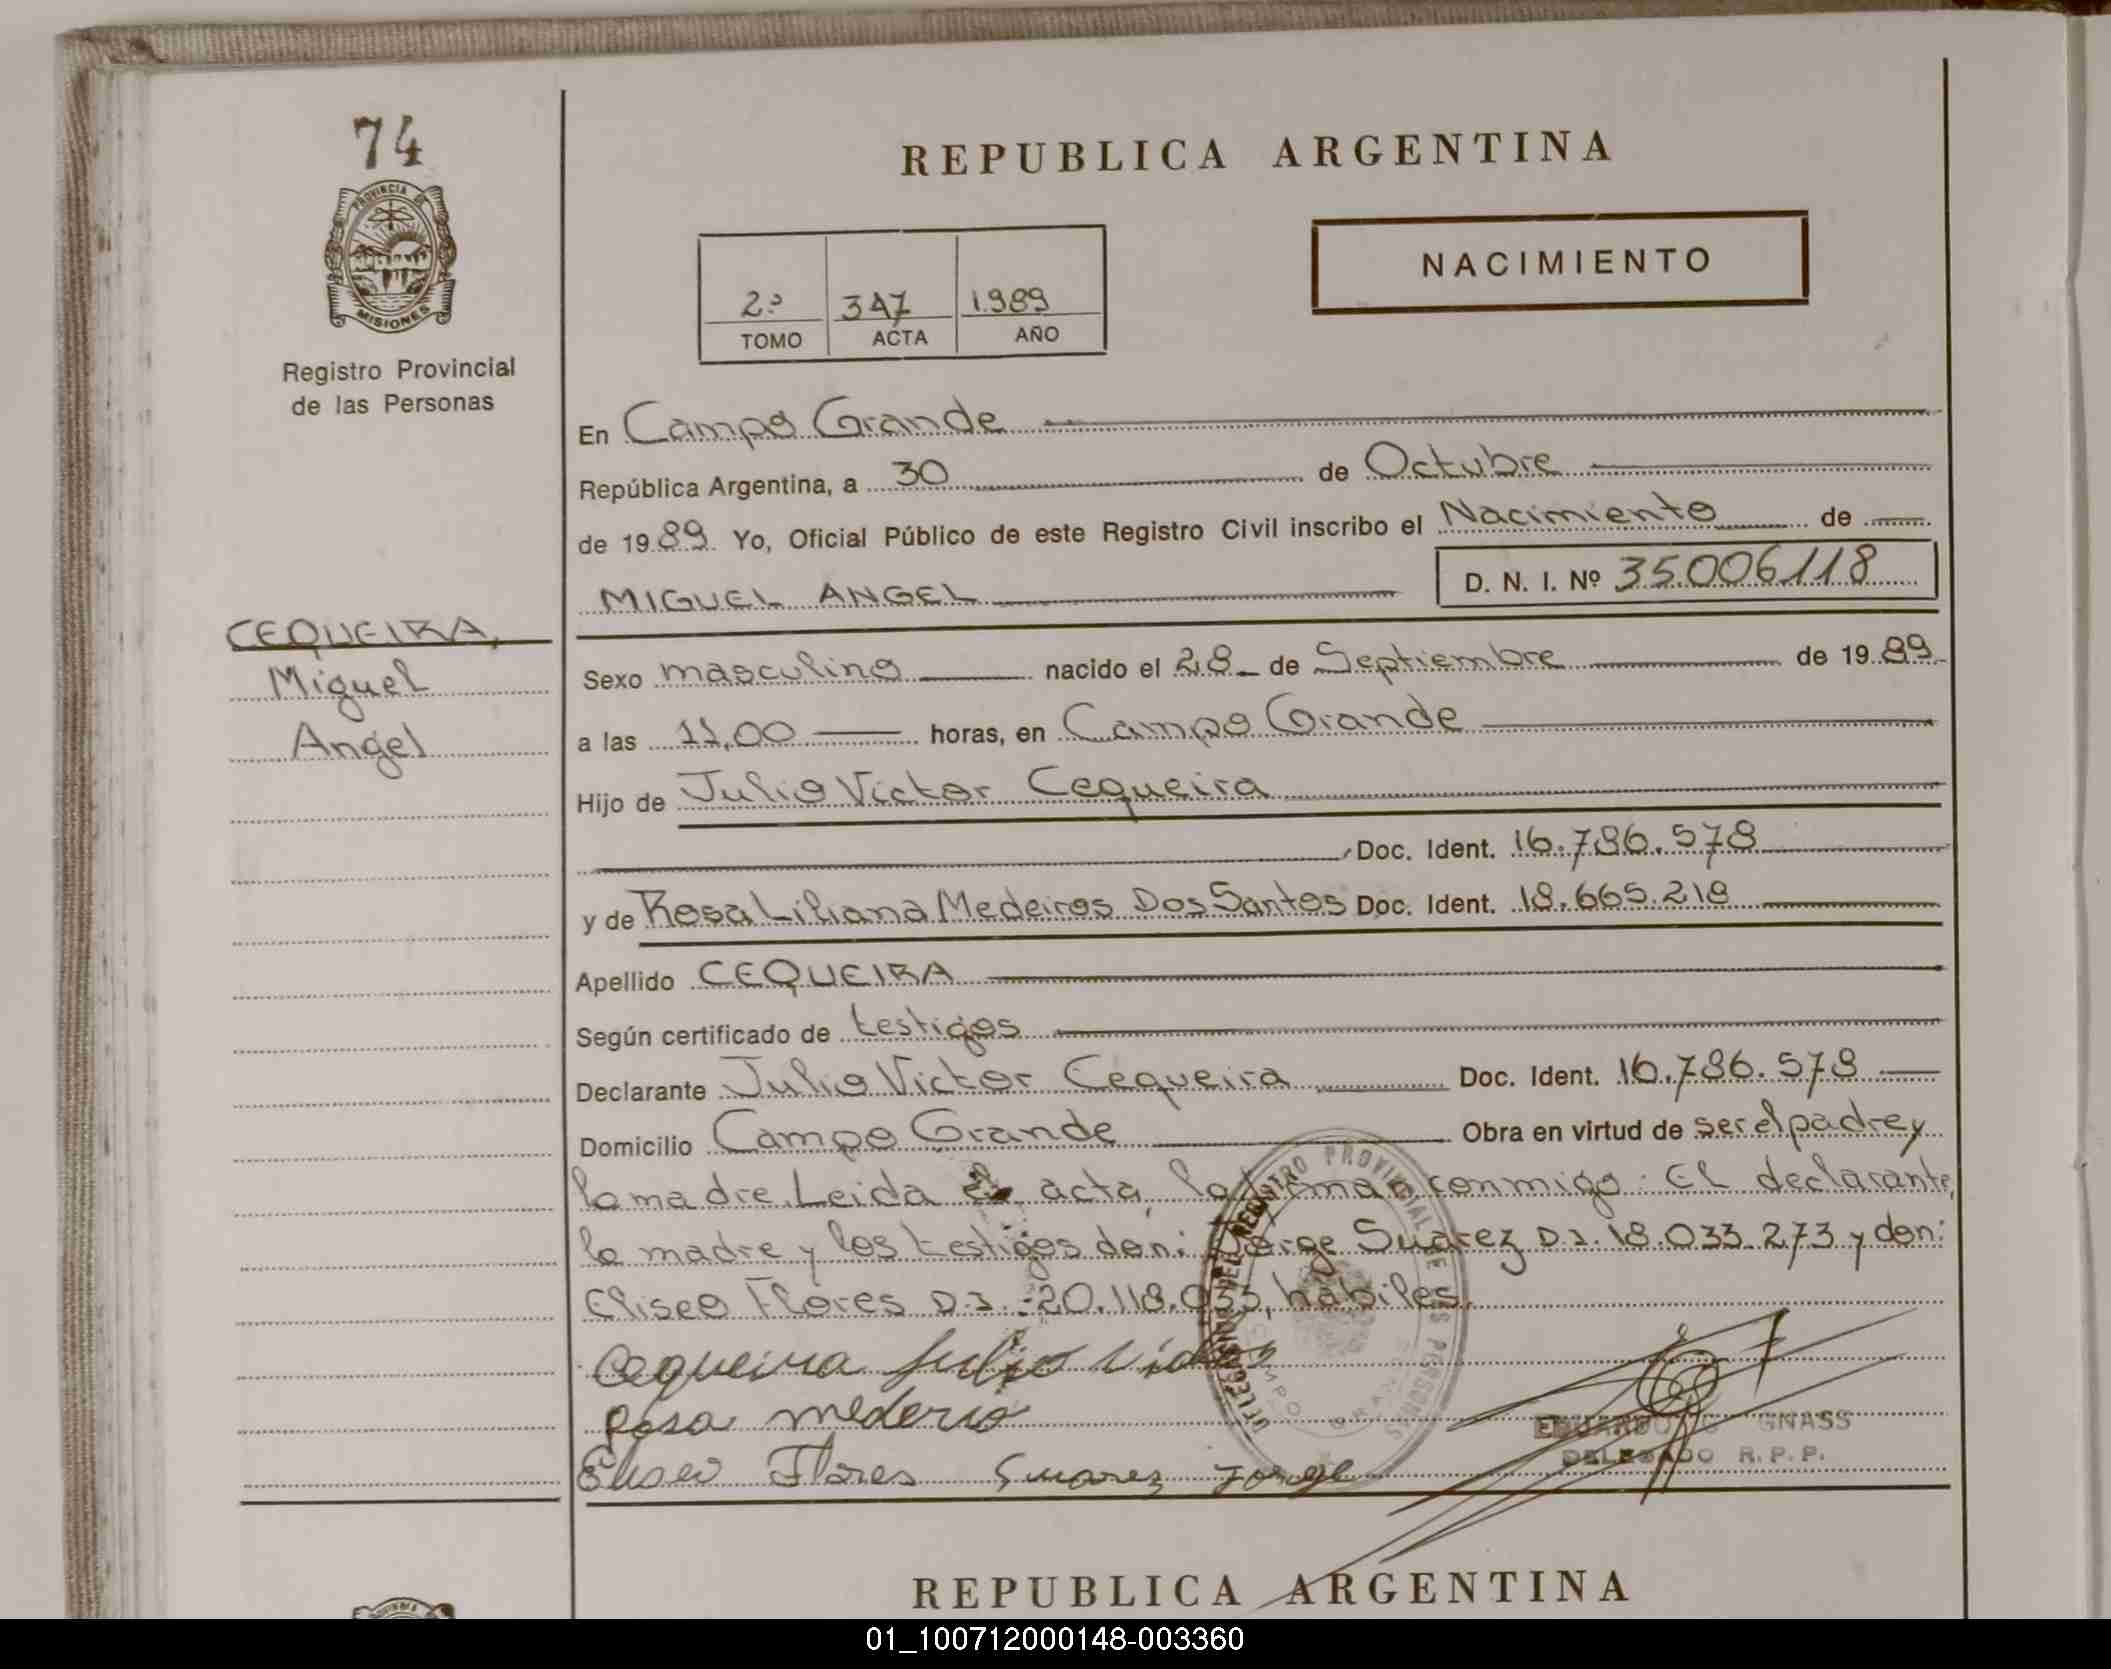 74
PROVINCIA DE
MISIONES
Registro Provincial
de las Personas
CEQUEIRA,
Miguel
Angel
REPUBLICA ARGENTINA
2º 347 1989
TOMO ACTA AÑO
NACIMIENTO
En Campo Grande
República Argentina, a 30 de Octubre
de 1989 Yo, Oficial Público de este Registro Civil inscribo el Nacimiento de
MIGUEL ANGEL D. N. I. Nº 35006118
Sexo masculino nacido el 28 de Septiembre de 1989
a las 11,00 horas, en Campo Grande
Hijo de Julio Victor Cequeira
Doc. Ident. 16.786.578
y de Rosa Liliana Medeiros Dos Santos Doc. Ident. 18.665.218
Apellido CEQUEIRA
Según certificado de testigos
Declarante Julio Victor Cequeira Doc. Ident. 16.786.578
Domicilio Campo Grande Obra en virtud de ser el padre y
la madre. Leida acta, la firman conmigo: El declarante,
la madre y los testigos don: Jorge Suarez D.I. 18.033.273 y don:
Eliseo Flores D.I. 20.118.033, habiles.
Cequeira Julio Victor
Rosa mederio
Eliseo Flores Suarez Jorge
REGISTRO PROVINCIAL DE LAS PERSONAS
CAMPO GRANDE
EDUARDO GNASS
DELEGADO R.P.P.
REPUBLICA ARGENTINA
01_100712000148-003360